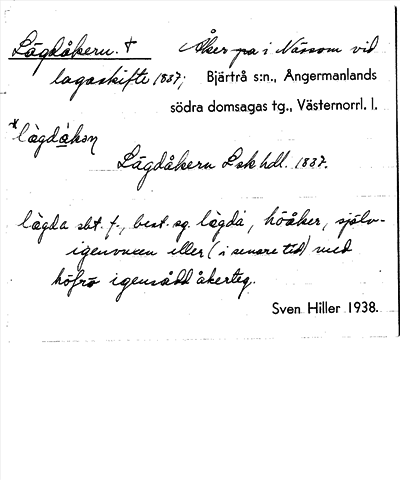 Lägdåkern. † Åker på i Nässom vid
lagaskifte 1837; Bjärtrå s:n., Ångermanlands
södra domsagas tg., Västernorrl. l.
*lägdåkən
Lägdåkern Lsk hdl. 1837.
lägda sbt. f., best. sg. lägda, höåker, själv-
igenvuxen eller (i senare tid) med
höfrö igensådd åkerteg.
Sven Hiller 1938.